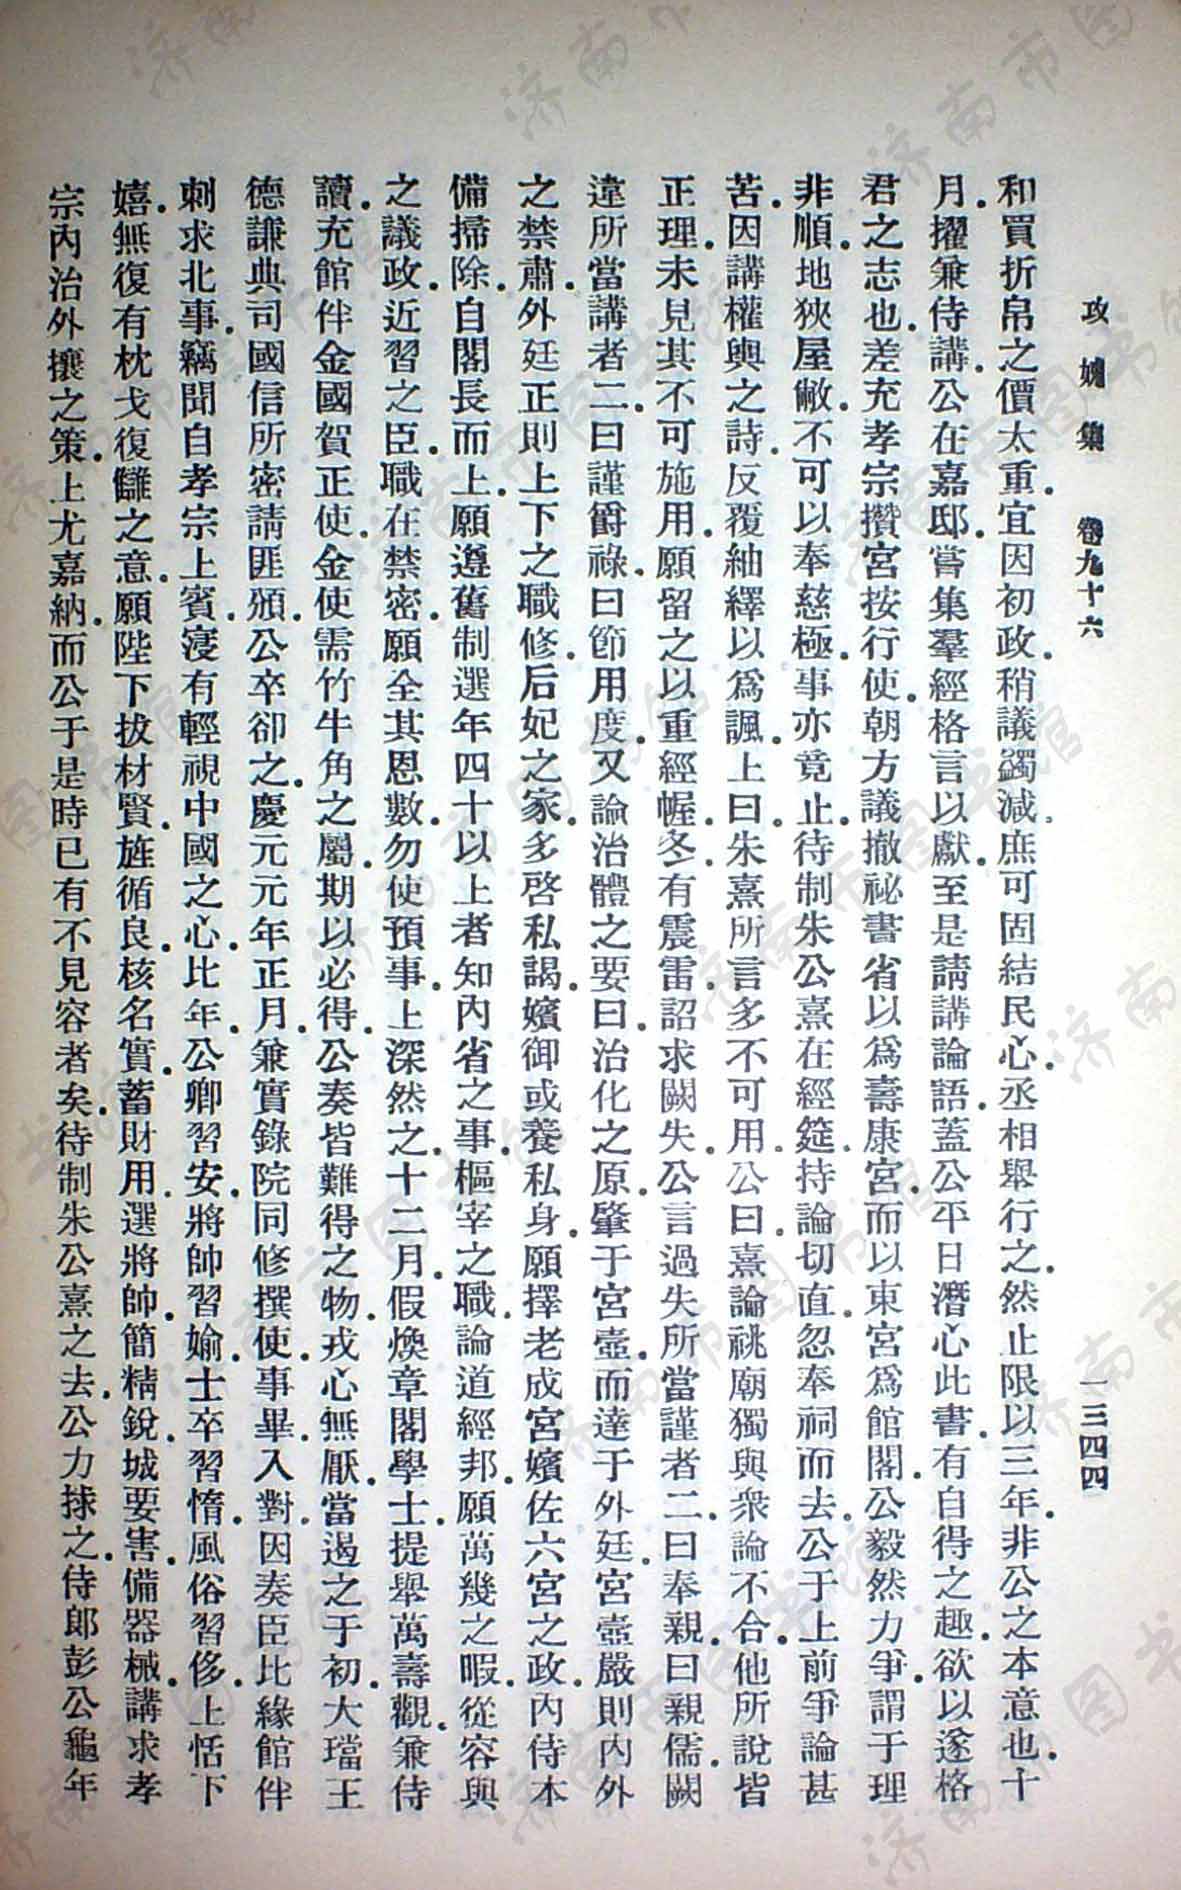 攻媿集　卷九十六　一三四四
和買折帛之價太重．宜因初政．稍議蠲減．庶可固結民心．丞相舉行之．然止限以三年．非公之本意也．十
月．擢兼侍講．公在嘉邸．嘗集羣經格言以獻．至是請講論語．蓋公平日潛心此書．有自得之趣．欲以遂格
君之志也．差充孝宗攢宮按行使．朝方議撤祕書省以爲壽康宮．而以東宮爲館閣．公毅然力爭．謂于理
非順．地狹屋敝．不可以奉慈極．事亦竟止．待制朱公熹在經筵．持論切直．忽奉祠而去．公于上前爭論甚
苦．因講權輿之詩．反覆紬繹以爲諷．上曰．朱熹所言多不可用．公曰．熹論祧廟獨與衆論不合．他所說皆
正理．未見其不可施用．願留之以重經幄．冬．有震雷．詔求闕失．公言過失所當謹者二．曰奉親．曰親儒．闕
違所當講者二．曰謹爵祿．曰節用度．又論治體之要曰．治化之原．肇于宮壼．而達于外廷．宮壼嚴則內外
之禁肅．外廷正則上下之職修．后妃之家．多啓私謁．嬪御或養私身．願擇老成宮嬪．佐六宮之政．內侍本
備掃除．自閣長而上．願遵舊制．選年四十以上者知內省之事．樞宰之職．論道經邦．願萬幾之暇．從容與
之議政．近習之臣．職在禁密．願全其恩數．勿使預事．上深然之．十二月．假煥章閣學士．提舉萬壽觀．兼侍
讀．充館伴金國賀正使．金使需竹牛角之屬．期以必得．公奏皆難得之物．戎心無厭．當遏之于初．大璫王
德謙典司國信所．密請匪頒．公卒卻之．慶元元年正月．兼實錄院同修撰．使事畢入對．因奏臣比緣館伴
刺求北事．竊聞自孝宗上賓．寖有輕視中國之心．比年．公卿習安．將帥習媮．士卒習惰．風俗習侈．上恬下
嬉．無復有枕戈復讎之意．願陛下拔材賢．旌循良．核名實．蓄財用．選將帥．簡精銳．城要害．備器械．講求孝
宗內治外攘之策．上尤嘉納．而公于是時已有不見容者矣．待制朱公熹之去．公力捄之．侍郎彭公龜年